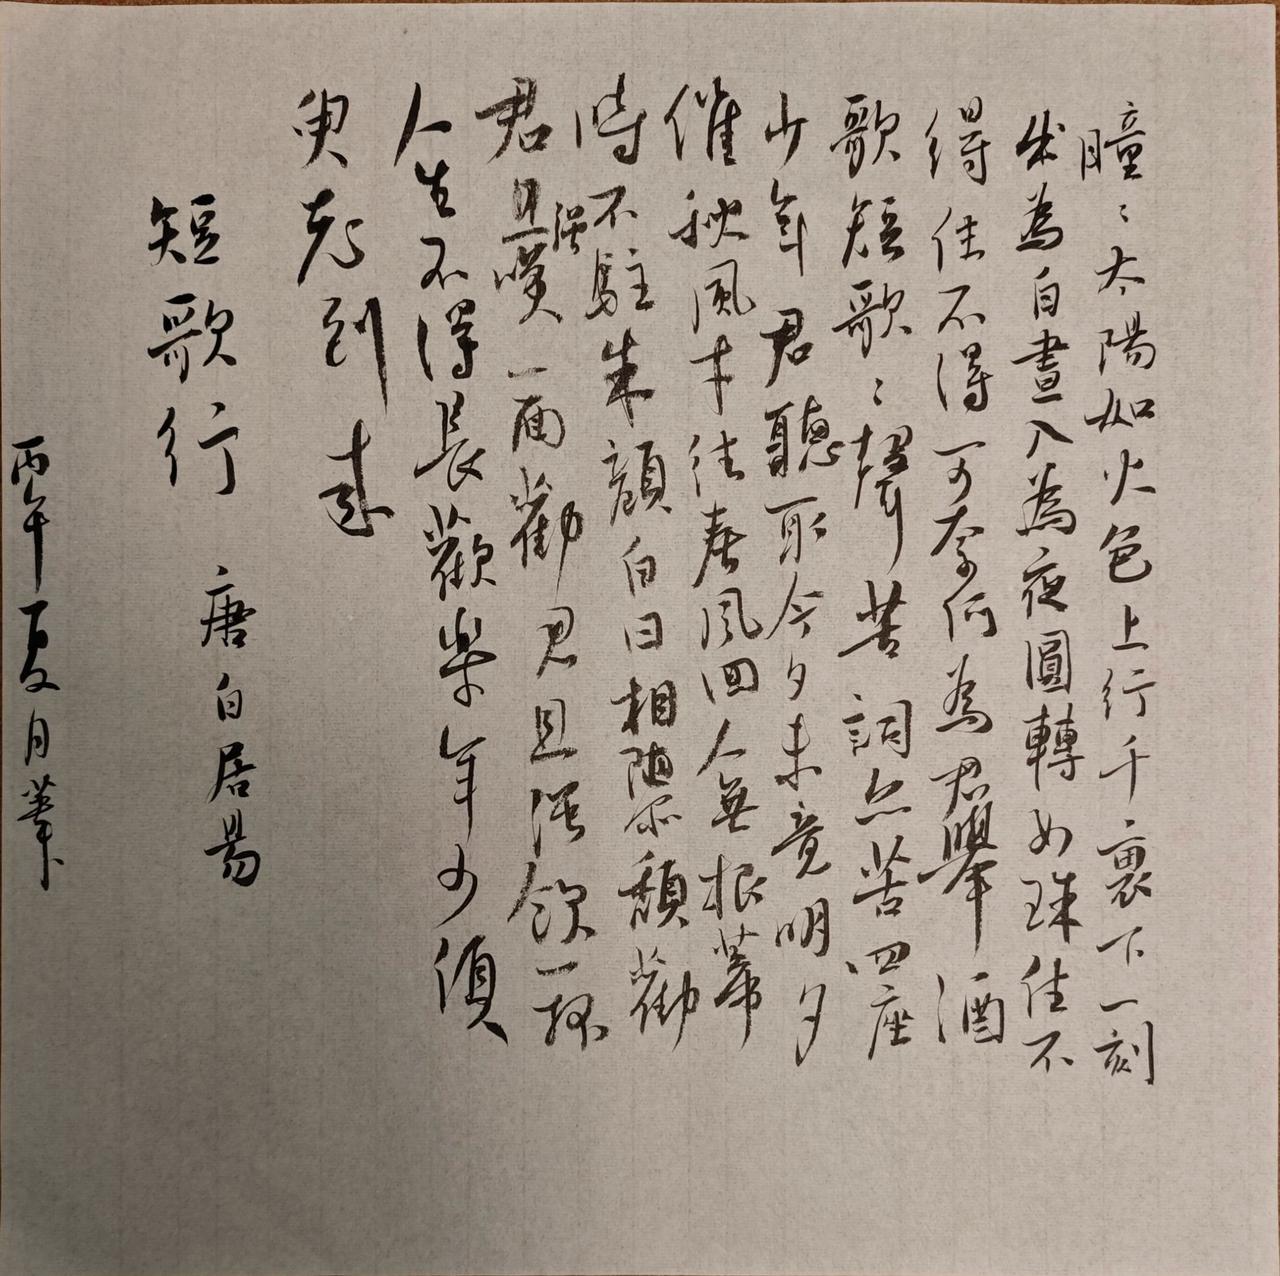 瞳〻太陽如火色上行千裏下一刻
出為白晝入為夜圓轉如珠住不
得住不得可奈何為君舉酒
歌短歌〻聲苦詞亦苦四座
少年君聽取今夕未竟明夕
催秋風才往春風回人無根蒂
時不駐朱顏白日相隳頹勸
君且強笑一面勸君且強飲一杯
人生不得長歡樂年少須
臾老到來
短歌行 唐白居易
丙午夏月筆